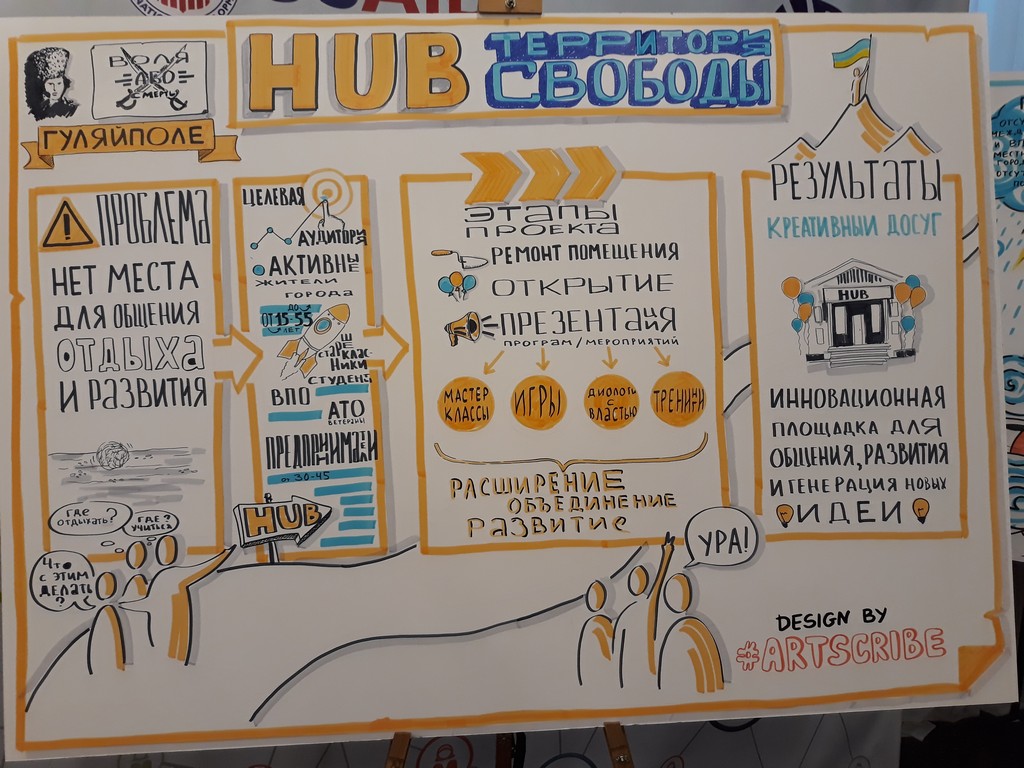 ВОЛЯ
АБО
СМЕРТЬ
ГУЛЯЙПОЛЕ
HUB ТЕРРИТОРИЯ
СВОБОДЫ
ПРОБЛЕМА
НЕТ МЕСТА
ДЛЯ ОБЩЕНИЯ
ОТДЫХА
И РАЗВИТИЯ
ГДЕ
ОТДЫХАТЬ?
ГДЕ?
УЧИТЬСЯ
ЧТО
С ЭТИМ
ДЕЛАТЬ
?
ЦЕЛЕВАЯ
АУДИТОРИЯ
АКТИВНЫЕ
ЖИТЕЛИ
ГОРОДА
ДО
ОТ 15-55
ЛЕТ
СТАРШЕКЛАССНИКИ
СТУДЕНТЫ
ВПО
АТО
ВЕТЕРАНЫ
ПРЕДПРИНИМАТЕЛИ
ОТ 30-45
HUB
ЭТАПЫ
ПРОЕКТА
РЕМОНТ ПОМЕЩЕНИЯ
ОТКРЫТИЕ
ПРЕЗЕНТАЦИЯ
ПРОГРАМ/МЕРОПРИЯТИЙ
МАСТЕР
КЛАССЫ
ИГРЫ
ДИОЛОГИ
С
ВЛАСТЬЮ
ТРЕНИНГИ
РАСШИРЕНИЕ
ОБЪЕДИНЕНИЕ
РАЗВИТИЕ
УРА!
РЕЗУЛЬТАТЫ
КРЕАТИВНЫЙ ДОСУГ
HUB
ИННОВАЦИОННАЯ
ПЛОЩАДКА ДЛЯ
ОБЩЕНИЯ, РАЗВИТИЯ
И ГЕНЕРАЦИЯ НОВЫХ
ИДЕИ
DESIGN BY
#ARTSCRIBE